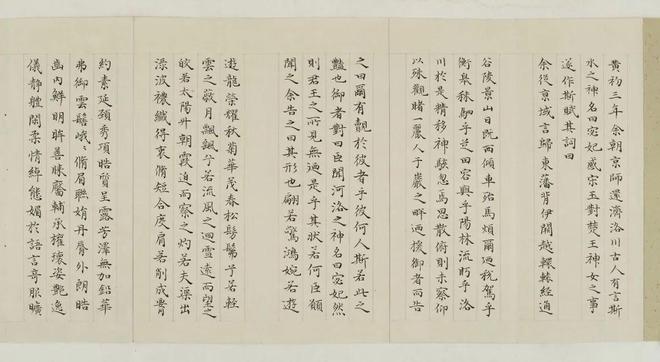 黃初三年余朝京師還濟洛川古人有言斯
水之神名曰宓妃感宋玉對楚王神女之事
遂作斯賦其詞曰
余從京域言歸東藩背伊闕越轘轅經通
谷陵景山日既西傾車殆馬煩爾迺稅駕乎
蘅皋秣駟乎芝田容與乎陽林流眄乎洛
川於是精移神駭忽焉思散俯則未察仰
以殊觀睹一麗人于巖之畔迺援御者而告
之曰爾有覿於彼者乎彼何人斯若此之
豔也御者對曰臣聞河洛之神名曰宓妃然
則君王之所見無迺是乎其狀若何臣願
聞之余告之曰其形也翩若驚鴻婉若遊
遊龍榮耀秋菊華茂春松髣髴兮若輕
雲之蔽月飄飄兮若流風之迴雪遠而望之
皎若太陽升朝霞迫而察之灼若夫蕖出
淥波襛纖得衷脩短合度肩若削成要
約素延頸秀項皓質呈露芳澤無加鉛華
弗御雲髻峩〻脩眉聯娟丹脣外朗皓
齒內鮮明眸善睞靨輔承權瓌姿豔逸
儀靜體閑柔情綽態媚於語言奇服曠